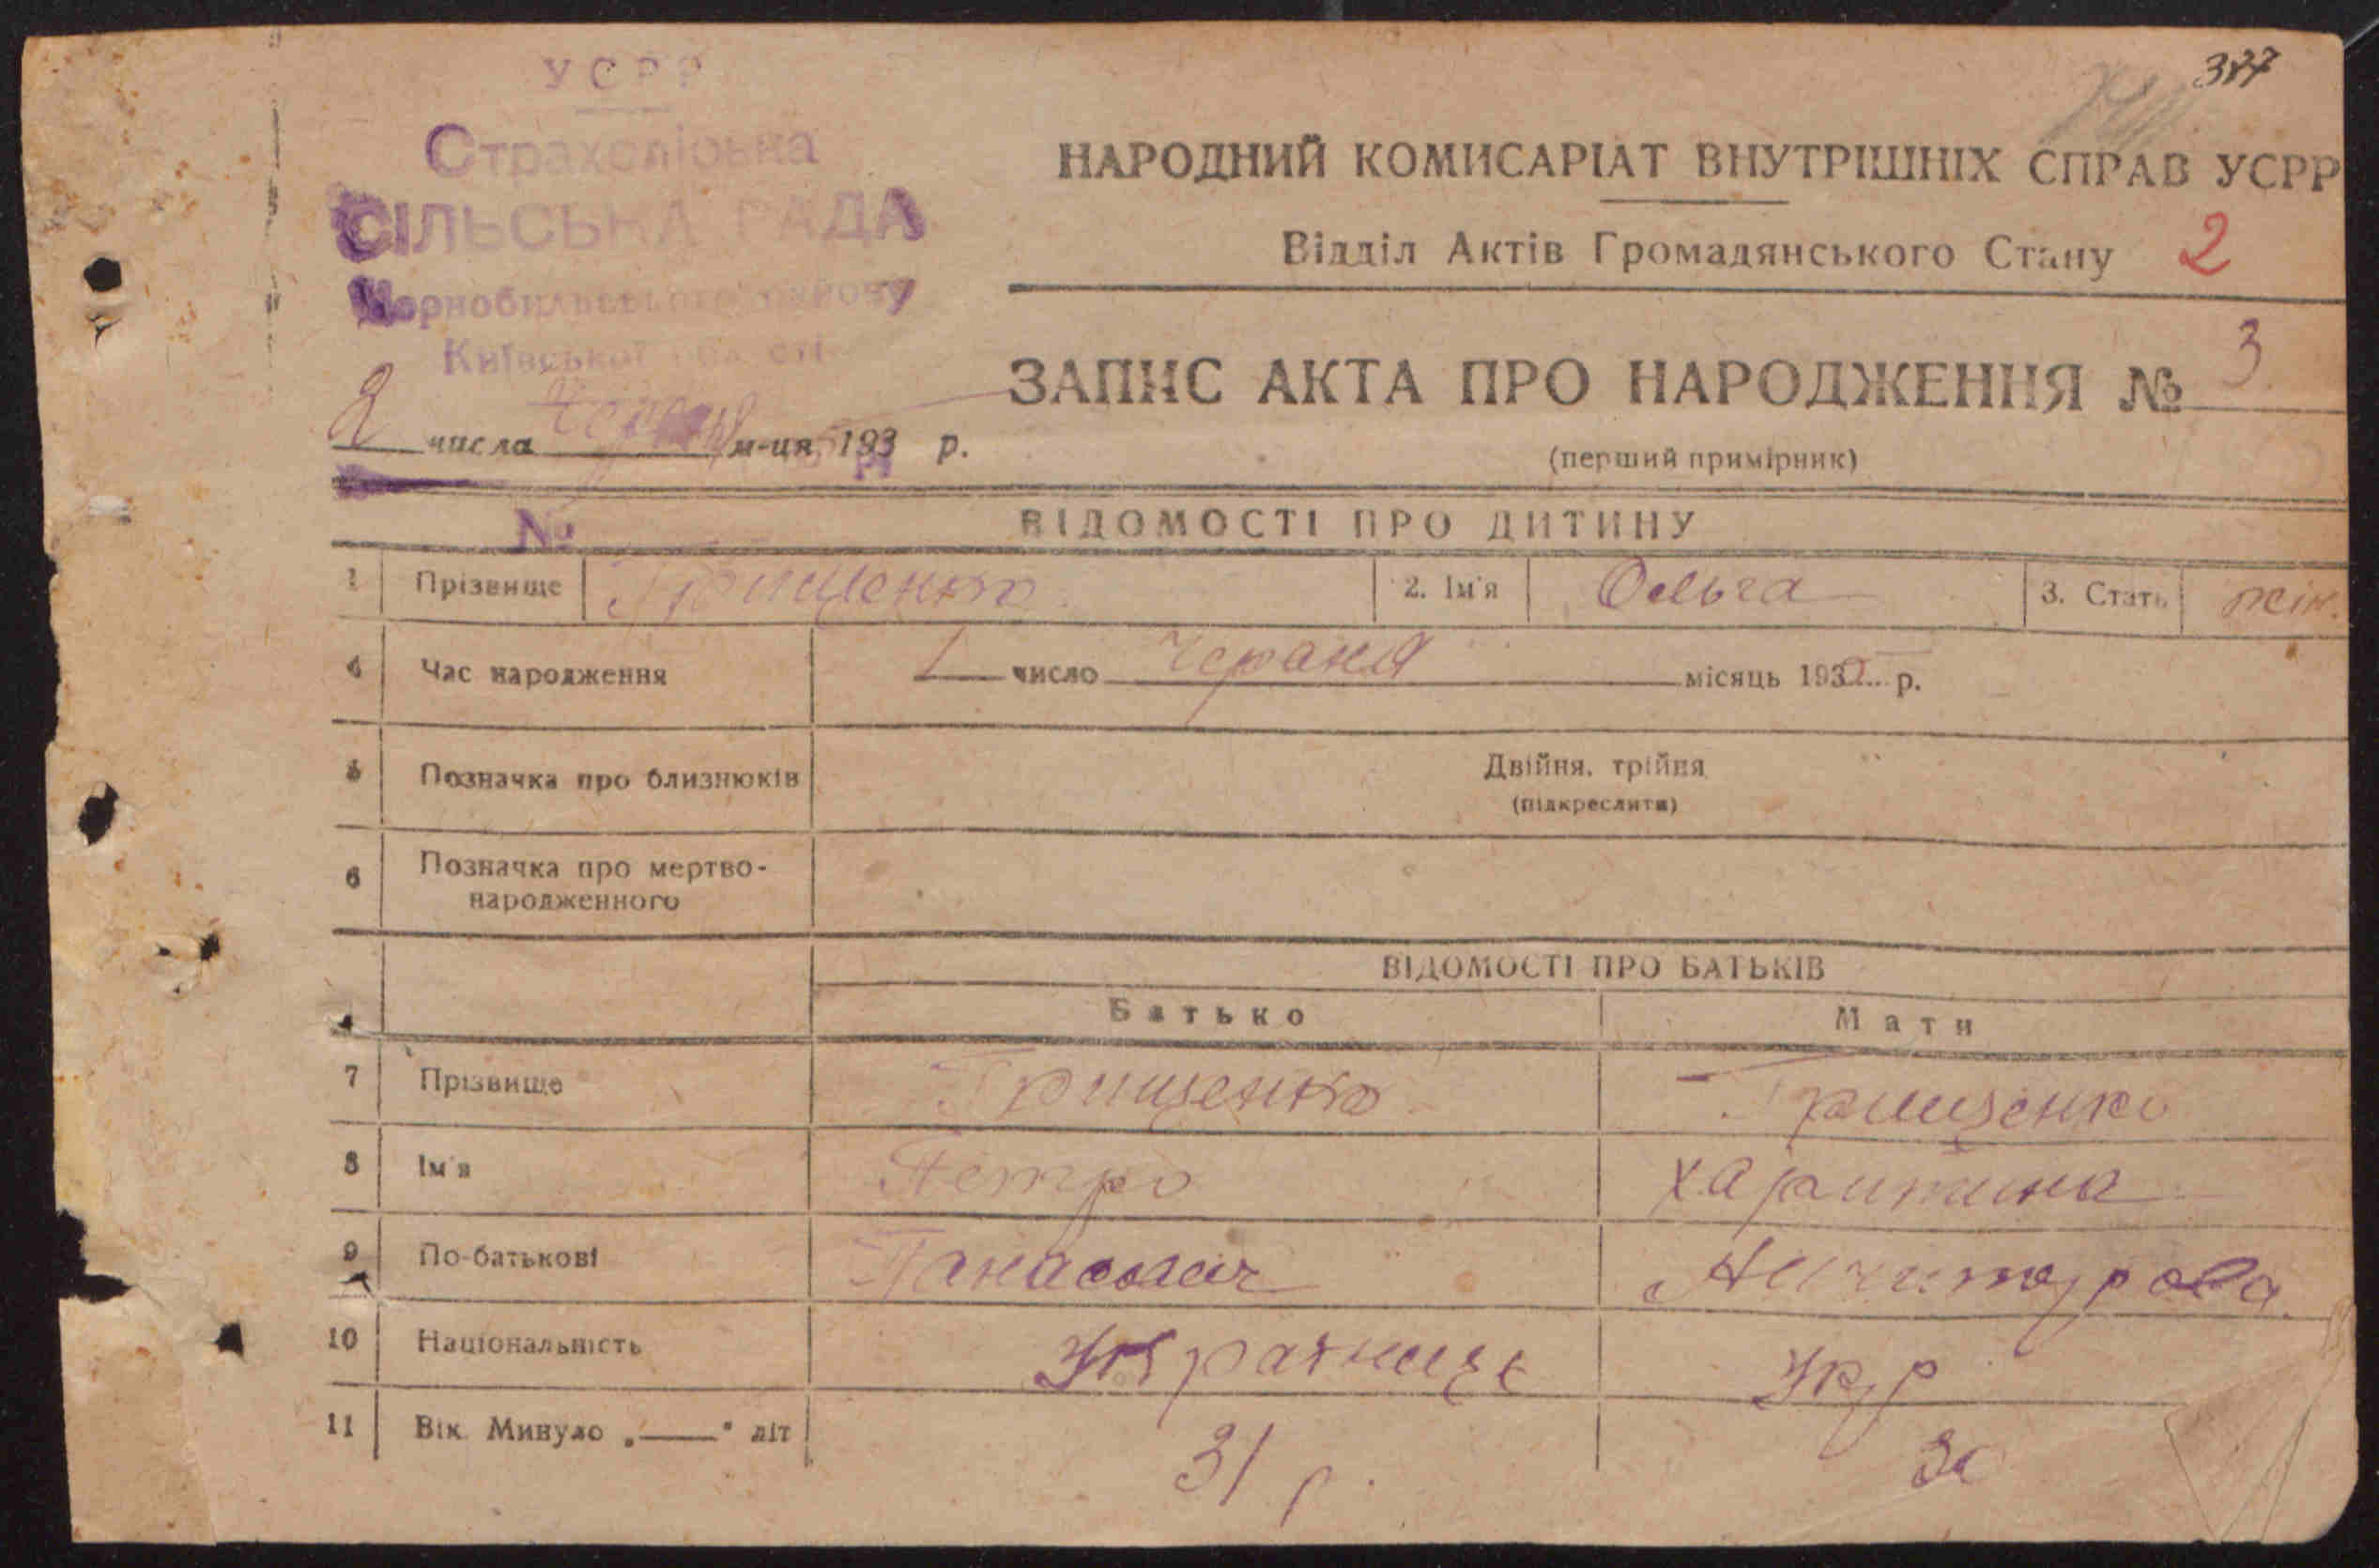 387
УСРР
Страхоліська
СІЛЬСЬКА РАДА
Чорнобильського району
Київської області
НАРОДНИЙ КОМИСАРІАТ ВНУТРІШНІХ СПРАВ УСРР
Відділ Актів Громадянського Стану 2
ЗАПИС АКТА ПРО НАРОДЖЕННЯ № 3
(перший примірник)
2 числа м-ця 193 р.
№
ВІДОМОСТІ ПРО ДИТИНУ
1 Прізвище Грищенко 2. Ім'я Ольга 3. Стать жін.
4 Час народження 1 число Червня місяць 193 р.
5 Позначка про близнюків Двійня, трійня
(підкреслити)
6 Позначка про мертво-
народженного
ВІДОМОСТІ ПРО БАТЬКІВ
Батько Мати
7 Прізвище Грищенко Грищенко
8 Ім'я Петро Харитина
9 По-батькові Панасович
10 Національність Українець Укр
11 Вік. Минуло „ — " літ 31 р. 30